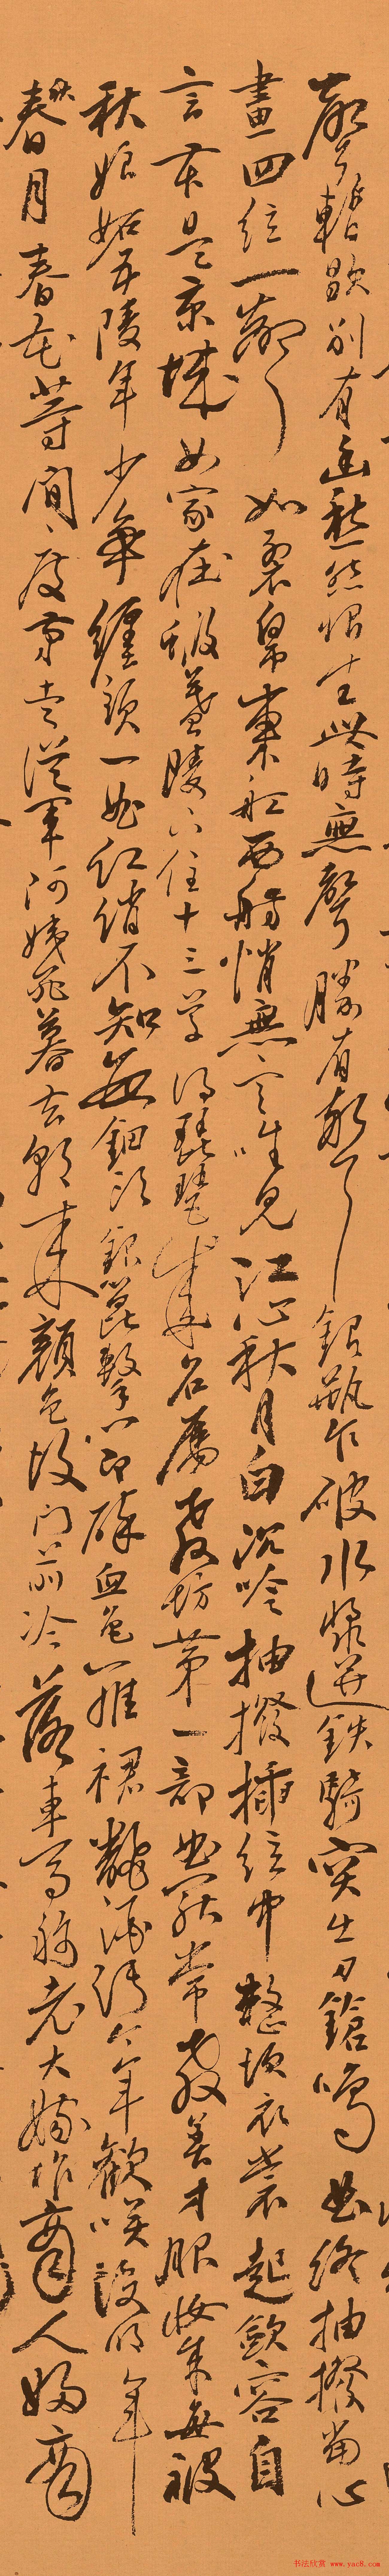 聲暫歇別有幽愁暗恨生此時無聲勝有聲銀瓶乍破水漿迸鐵騎突出刀鎗鳴曲終抽撥當心
畫四絃一聲如裂帛東船西舫悄無言唯見江心秋月白沉吟抽撥插絃中整頓衣裳起歛容自
言本是京城女家在蝦蟇陵下住十三學得琵琶成名屬教坊第一部曲罷常教善才服妝成每被
秋娘妬五陵年少爭纏頭一曲紅綃不知數鈿頭銀篦擊節碎血色羅裙飜酒污今年歡笑復明年
秋月春花等閒度弟走從軍阿姨死暮去朝來顏色故門前冷落車馬稀老大嫁作商人婦商
书法欣赏 www.yac8.com